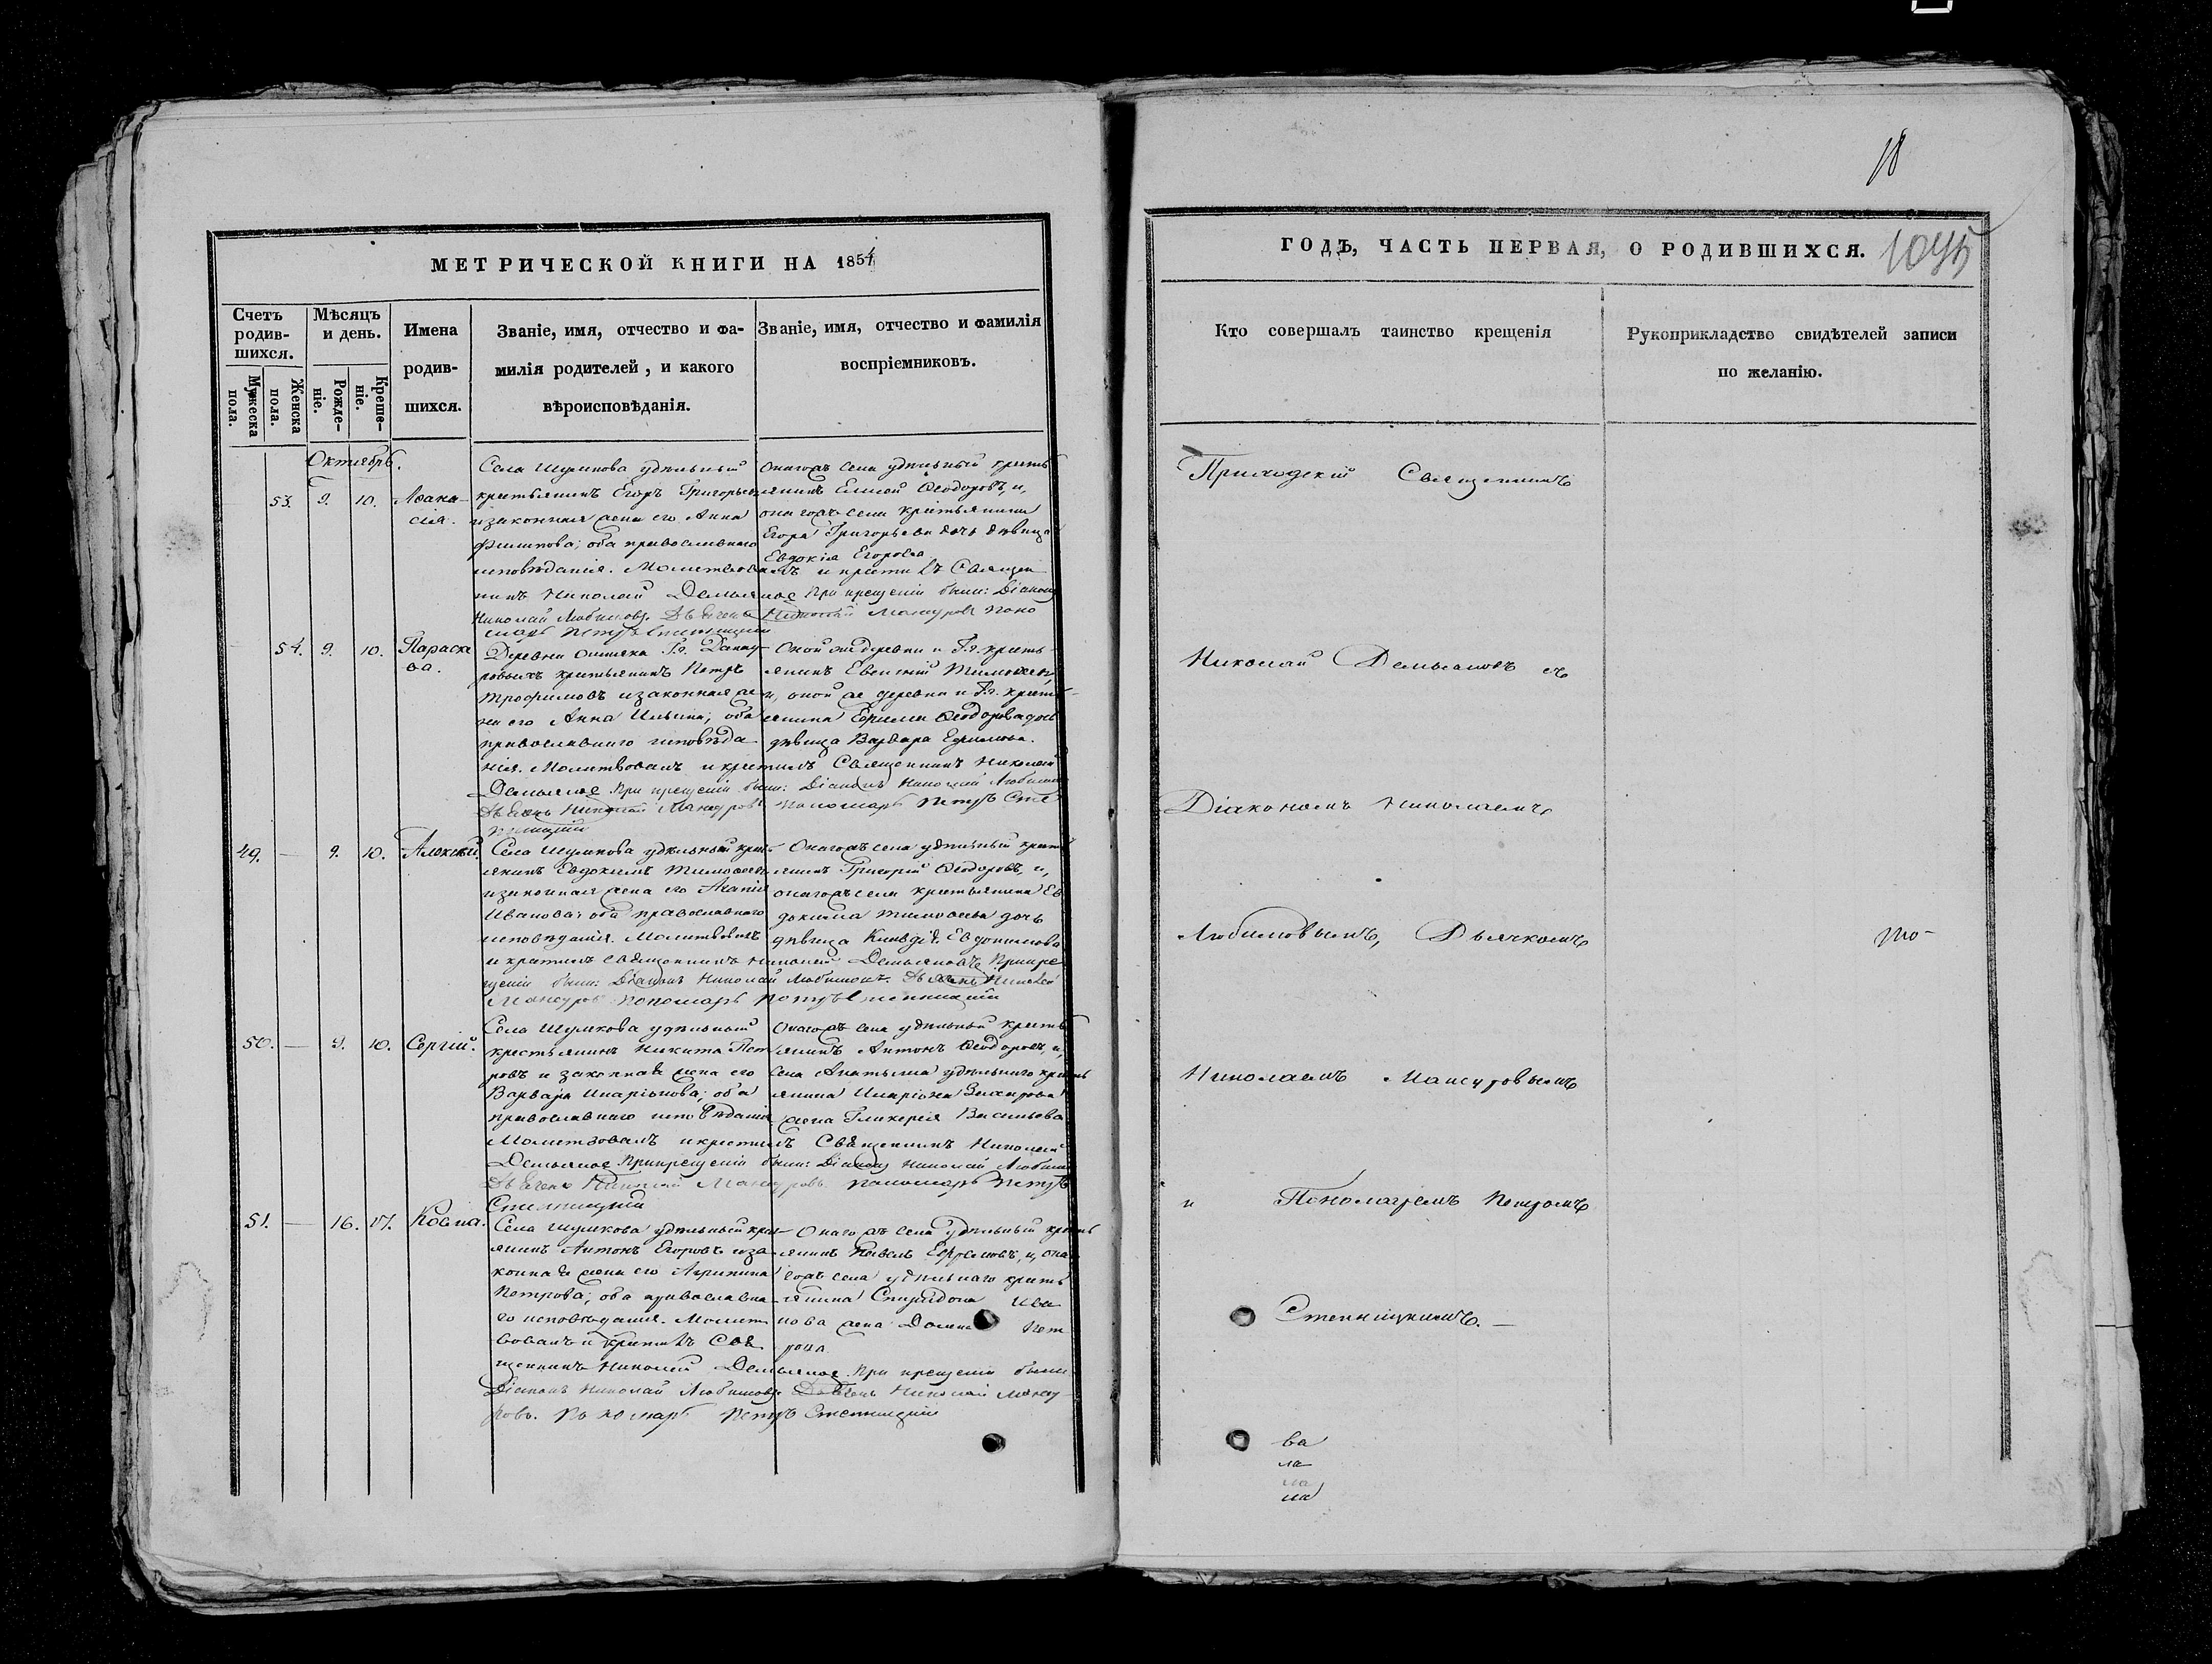 18
МЕТРИЧЕСКОЙ КНИГИ НА 1854
ГОДЪ, ЧАСТЬ ПЕРВАЯ, О РОДИВШИХСЯ.
Счетъ родив-шихся.
Мужеска пола.
Женска пола.
Мѣсяцъ и день.
Рожде-ніе.
Креще-ніе.
Имена
родив-
шихся.
Званіе, имя, отчество и фа-
милія родителей, и какого
вѣроисповѣданія.
Званіе, имя, отчество и фамилія
воспріемниковъ.
Кто совершалъ таинство крещенія
Рукоприкладство свидѣтелей записи
по желанію.
Октябрь.
53. 9. 10. Аѳана-
сія.
Села Шумкова удѣльный
крестьянинъ Егоръ Григорьевъ
и законная жена его Анна
Филипова; оба православнаго
исповѣданія. Молитвовалъ и крестилъ Священ
никъ Николай
При крещеніи были: Діаконъ
Николай Любимовъ. Николай Мансуровъ Поно
марь Петръ
Онагожъ села удѣльный кресть
янинъ Елисей Ѳеодоровъ, и,
онагожъ села крестьянина
Егора Григорьева дочь дѣвица
Евдокія Егорова
54. 9. 10. Параске
ва.
Деревни
крестьянинъ Петръ
Трофимовъ и законная же
на его Анна Ильина; оба
православнаго исповѣда
нія. Молитвовалъ и крестилъ Священникъ Николай
При крещеніи были: Діаконъ Николай Любимовъ
Николай Мансуровъ Пономарь Петръ Сте
пницкій
Оной же деревни и Г. г. кресть
янинъ Евгеній Тимоѳеевъ,
и, оной же деревни и Г. г. кресть
янина Ефима Ѳеодорова дочь
дѣвица Варвара Ефимова.
49. — 9. 10. Алексѣй.
Села Шумкова удѣльный кресть
янинъ Евдокимъ Тимоѳеевъ
и законная жена его
Иванова; оба православнаго
исповѣданія. Молитвовалъ
и крестилъ Священникъ Николай При кре
щеніи были: Діаконъ Николай Любимовъ. Николай
Мансуровъ Пономарь Петръ Степницкій
Онагожъ села удѣльный кресть
янинъ Григорій Ѳеодоровъ, и,
онагожъ села крестьянина Ев
докима Тимоѳеева дочь
дѣвица Евдокимова
50. — 9. 10. Сергій.
Села Шумкова удѣльный
крестьянинъ Никита Пет
ровъ и законная жена его
Варвара Иларіонова; оба
православнаго исповѣданія
Молитвовалъ и крестилъ Священникъ Николай
При крещеніи были: Діаконъ Николай Любимовъ
Николай Мансуровъ Пономарь Петръ
Степницкій
Онагожъ села удѣльный кресть
янинъ Антонъ Ѳеодоровъ, и,
села удѣльнаго кресть
янина Иларіона Захарова
жена Гликерія Васильева
51. — 16. 17. Косма.
Села Шумкова удѣльный крест
янинъ Антонъ Егоровъ и за
конная жена его Агрипина
Петрова; оба православна
го исповѣданія. Молит
вовалъ и крестилъ Свя
щенникъ Николай При крещеніи были
Діаконъ Николай Любимовъ Николай Мансу
ровъ. Пономарь Петръ Степницкій
Онагожъ села удѣльный кресть
янинъ Павелъ Ефремовъ, и, она
гожъ села удѣльнаго кресть
янина Спиридона Ива
нова жена Пет
рова
Приходскій Священникъ
Николай Демьановъ съ
Діакономъ Николаемъ
Любимовымъ, Дьячкомъ
то-
Николаемъ Мансуровымъ
и Пономаремъ Петромъ
Степницкимъ. —
ва
ла